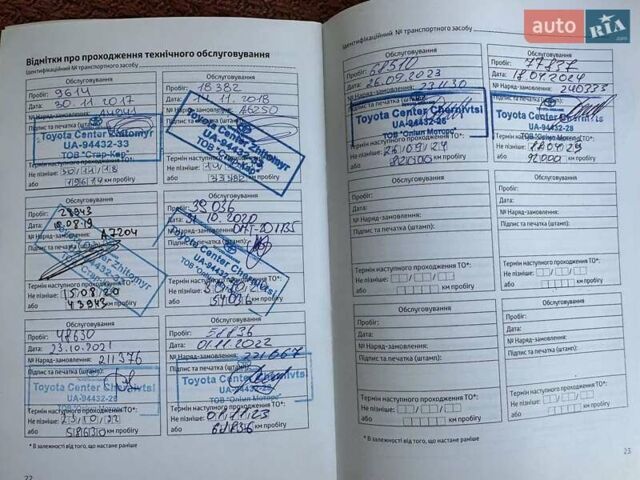 Відмітки про проходження технічного обслуговування
Ідентифікаційний № транспортного засобу
Обслуговування
Пробіг: 9614
Дата: 30.11.2017
№ Наряд-замовлення:
Підпис та печатка (штамп):
Toyota Center Zhitomyr
UA-94432-33
ТОВ "Стар-Кар"
Термін наступного проходження ТО*:
Не пізніше: 30/11/18
або 19614 км пробігу
Обслуговування
Пробіг: 18382
Дата: 11.2018
№ Наряд-замовлення: A6250
Підпис та печатка (штамп):
Toyota Center Zhitomyr
UA-94432-33
Термін наступного
Не пізніше:
або 33382 км пробігу
Обслуговування
28943
18.08.19
№ Наряд-замовлення: A7204
Підпис та печатка (штамп):
Toyota Center Zhitomyr
Термін наступного проходження ТО*:
Не пізніше: 15.08/20
або 43943 км пробігу
Обслуговування
39036
31.10.2020
Підпис та печатка (штамп):
Toyota Center Chernivtsi
Не пізніше:
або 54036 км пробігу
Обслуговування
Пробіг: 48630
Дата: 23.10.2021
№ Наряд-замовлення: 211376
Підпис та печатка (штамп):
Toyota Center Chernivtsi
UA-94432-28
Термін наступного проходження ТО*:
Не пізніше: 23/10/22
або км пробігу
Обслуговування
Пробіг: 51836
Дата: 01.11.2022
№ Наряд-замовлення: 221667
Підпис та печатка (штамп):
Toyota Center Chernivtsi
ТОВ "Оліип Моторс"
Термін наступного проходження ТО*:
Не пізніше: 01/11/23
або 61836 км пробігу
* В залежності від того, що настане раніше
22
Ідентифікаційний № транспортного засобу
Обслуговування
Пробіг: 68510
Дата: 26.09.2023
№ Наряд-замовлення: 231130
Підпис та печатка (штамп):
Toyota Center Chernivtsi
UA-94432-28
Термін наступного проходження ТО*:
Не пізніше: 26/09/24
або 82000 км пробігу
Обслуговування
Пробіг:
Дата: 18.04.2024
№ Наряд-замовлення: 240333
Підпис та печатка (штамп):
Toyota Center Chernivtsi
UA-94432-28
Термін наступного проходження ТО*:
Не пізніше:
або 92000 км пробігу
Обслуговування
Пробіг:
Дата:
№ Наряд-замовлення:
Підпис та печатка (штамп):
Термін наступного проходження ТО*:
Не пізніше:
або км пробігу
Обслуговування
Пробіг:
Дата:
№ Наряд-замовлення:
Підпис та печатка (штамп):
Термін наступного проходження ТО*:
Не пізніше:
або км пробігу
Обслуговування
Пробіг:
Дата:
№ Наряд-замовлення:
Підпис та печатка (штамп):
Термін наступного проходження ТО*:
Не пізніше:
або км пробігу
Обслуговування
Пробіг:
Дата:
№ Наряд-замовлення:
Підпис та печатка (штамп):
Термін наступного проходження ТО*:
Не пізніше:
або км пробігу
* В залежності від того, що настане раніше
23
auto RIA .com